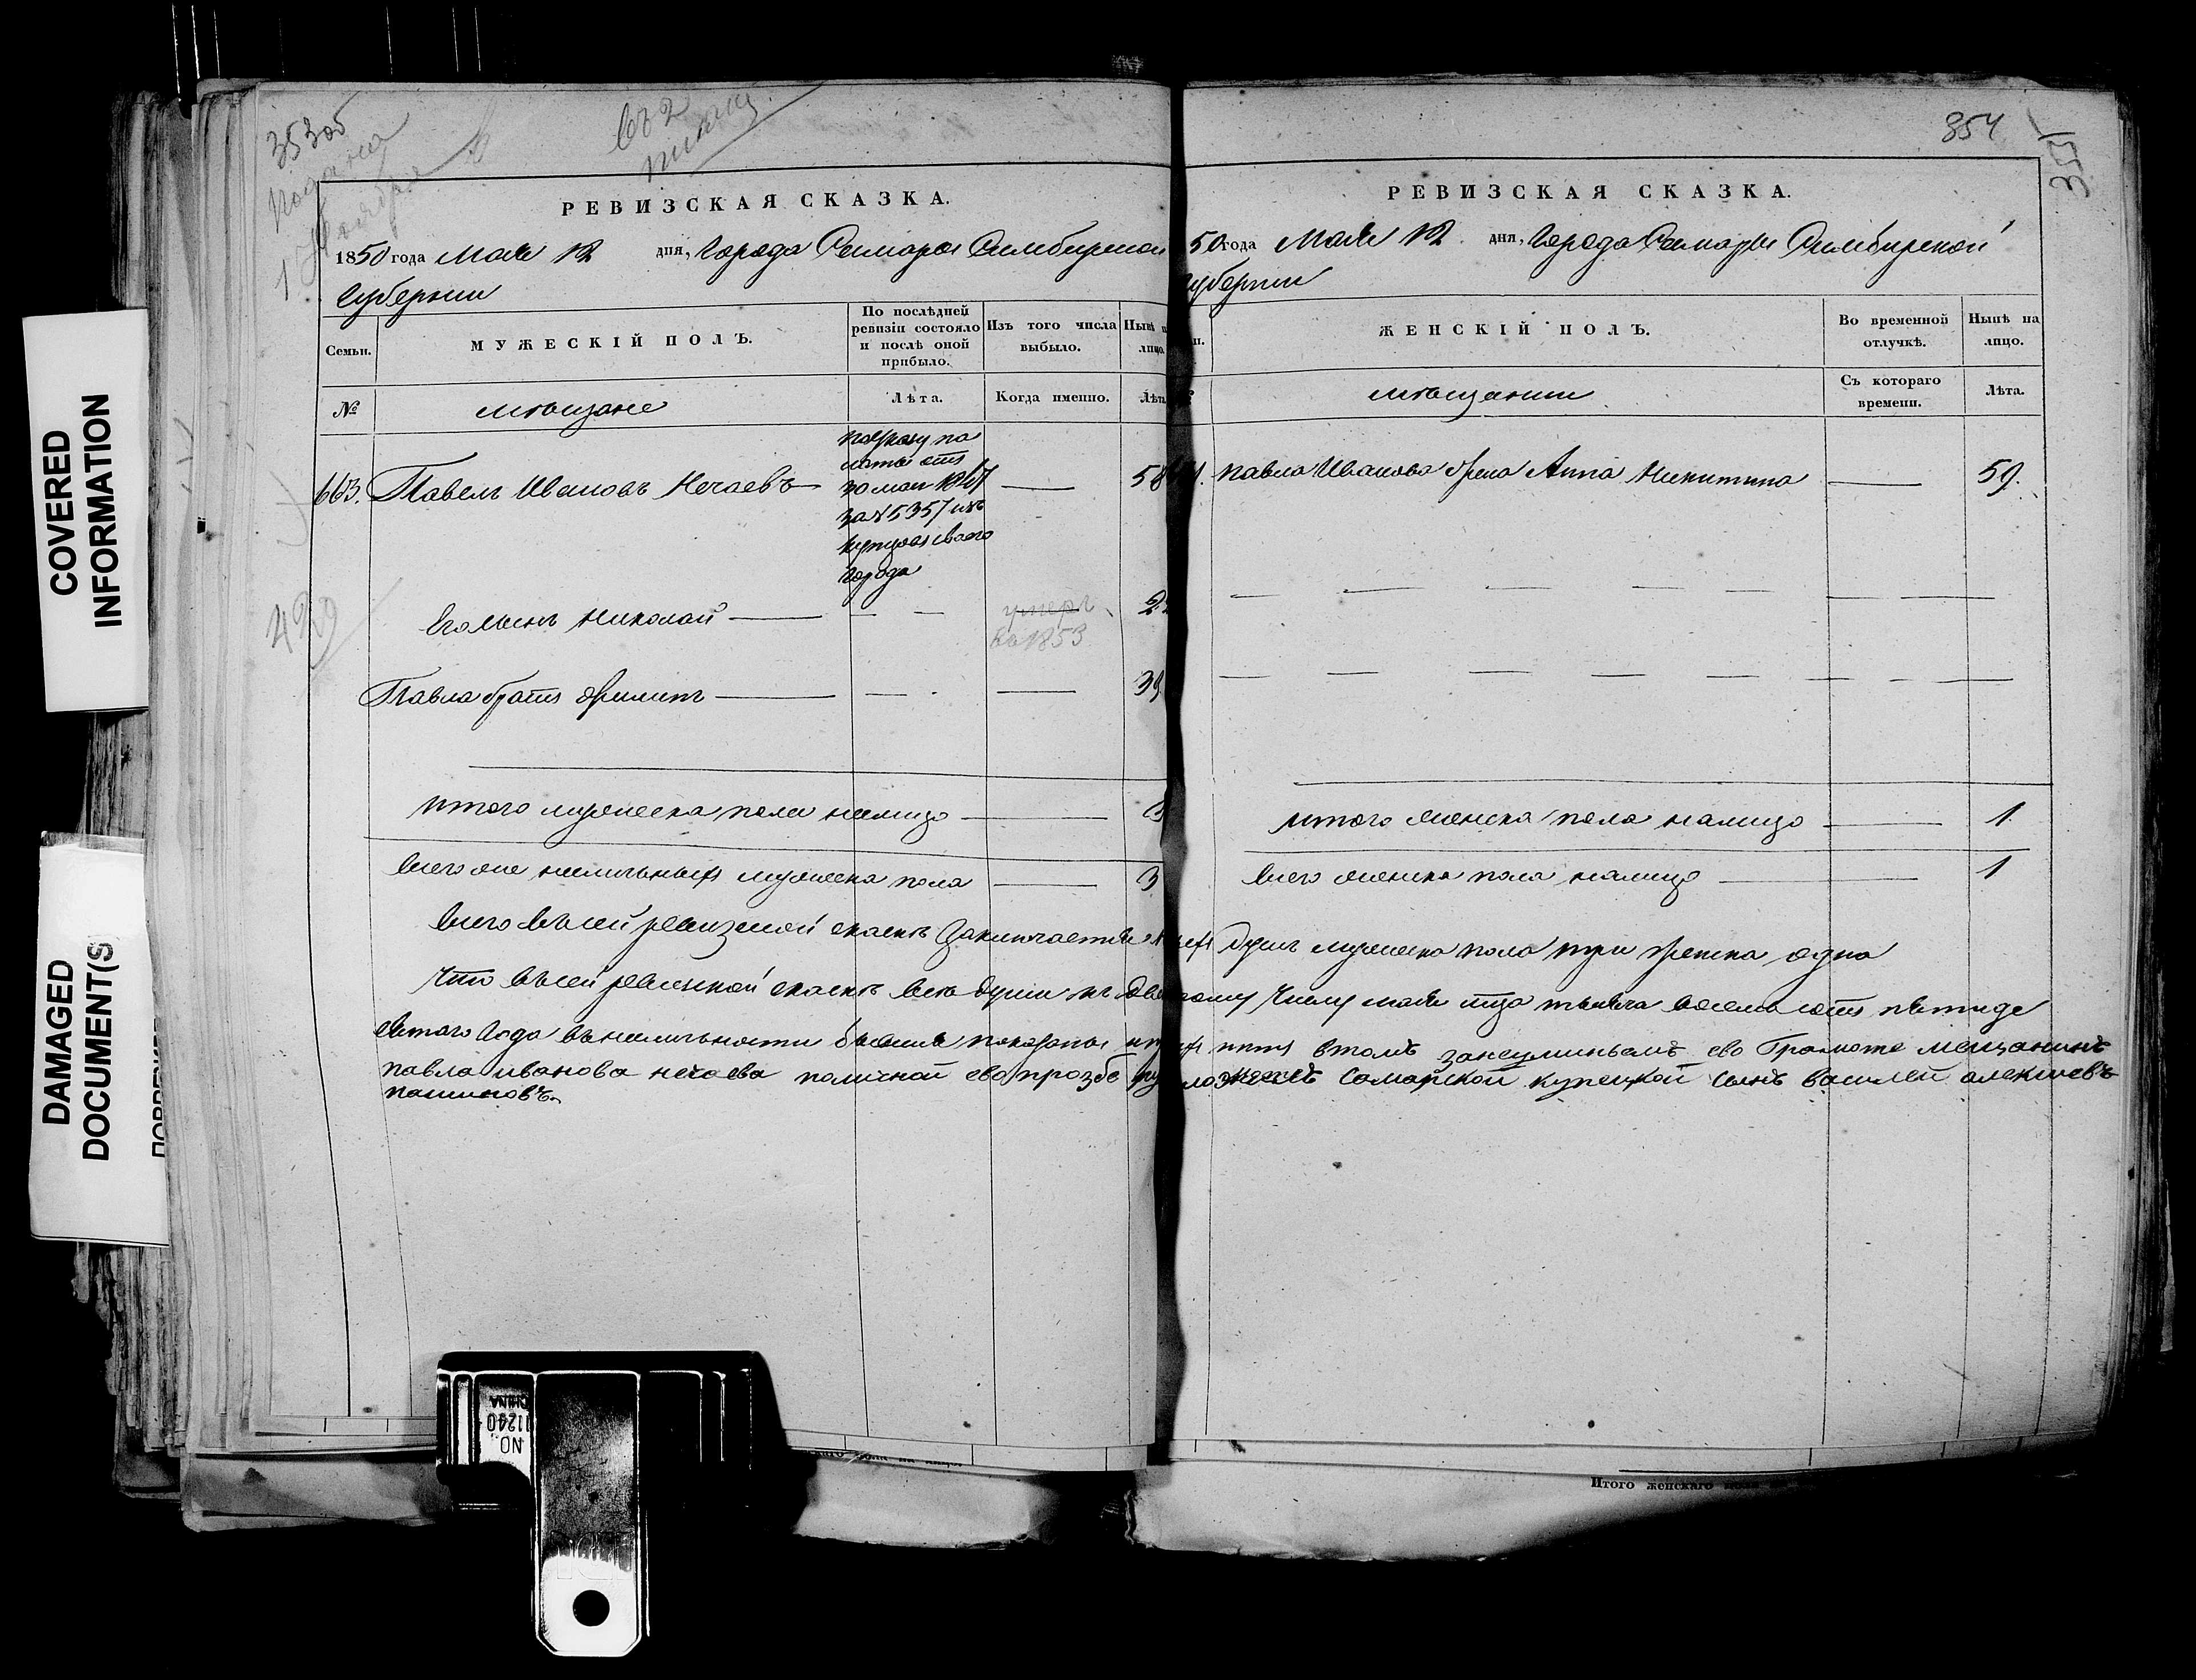 COVERED
INFORMATION
DAMAGED
DOCUMENT(S
353об
Подана
1 Ноября
въ 2
РЕВИЗСКАЯ СКАЗКА.
1850 года Мая 12 дня, Города Самары Симбирской
Губернии
Семьи.
МУЖЕСКІЙ ПОЛЪ.
По послѣдней
ревизіи состояло
и послѣ оной
прибыло.
Изъ того числа
выбыло.
Нынѣ
лицо.
№
мѣщане
Лѣта.
Когда именно.
Лѣта
663. Павелъ Ивановъ Нечаевъ
по указу па
латы отъ
30 мая 1847
за № 5357 изъ
купцовъ своего
города
58
Его сынъ Николай
умеръ
въ 1853
2
Павла братъ Филипъ
39
итого мужеска пола налицо
3
всего же наличныхъ мужеска пола
3
429
354
354
РЕВИЗСКАЯ СКАЗКА.
50 года Мая 12 дня, Города Самары Симбирской
губернии
ЖЕНСКІЙ ПОЛЪ.
Во временной
отлучкѣ.
Нынѣ на
лицо.
мѣщанки
Съ котораго
времени.
Лѣта.
Павла Иванова жена Анна Никитина
59.
итого женска пола налицо
1
всего женска пола налицо
1
Всего въ сей ревизской сказкѣ заключается душъ мужеска пола три женска одна
Что въ сей ревизской сказкѣ всѣ души къ числу мая тысяча восемь сотъ пятиде
сятаго года въ наличности бывшія показаны и нетъ в томъ ево Грамоте мещанинъ
павла иванова нечаева поличной ево прозбе самарской купецкой сынъ василей алексиевъ
пашиновъ
Итого женскаго